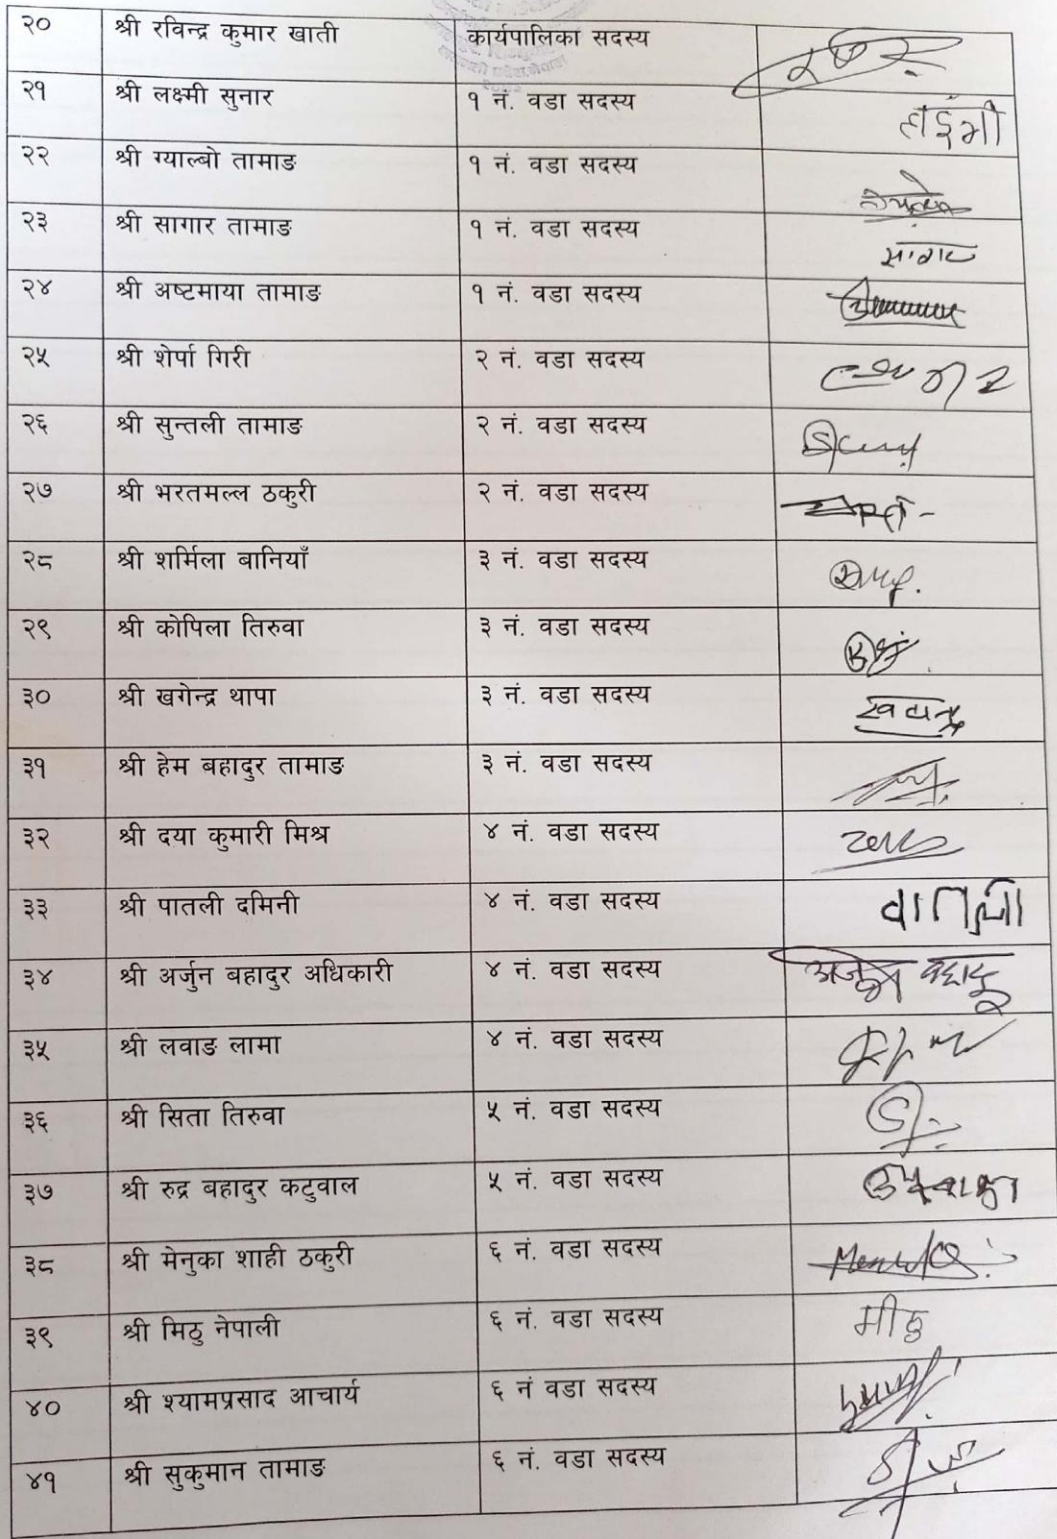 २० श्री रविन्द्र कुमार खाती कार्यपालिका सदस्य
२१ श्री लक्ष्मी सुनार १ नं. वडा सदस्य
२२ श्री ग्याल्बो तामाङ १ नं. वडा सदस्य
२३ श्री सागार तामाङ १ नं. वडा सदस्य सागर
२४ श्री अष्टमाया तामाङ १ नं. वडा सदस्य
२५ श्री शेर्पा गिरी २ नं. वडा सदस्य
२६ श्री सुन्तली तामाङ २ नं. वडा सदस्य
२७ श्री भरतमल्ल ठकुरी २ नं. वडा सदस्य
२८ श्री शर्मिला बानियाँ ३ नं. वडा सदस्य
२९ श्री कोपिला तिरुवा ३ नं. वडा सदस्य
३० श्री खगेन्द्र थापा ३ नं. वडा सदस्य
३१ श्री हेम बहादुर तामाङ ३ नं. वडा सदस्य
३२ श्री दया कुमारी मिश्र ४ नं. वडा सदस्य
३३ श्री पातली दमिनी ४ नं. वडा सदस्य
३४ श्री अर्जुन बहादुर अधिकारी ४ नं. वडा सदस्य
३५ श्री लवाङ लामा ४ नं. वडा सदस्य
३६ श्री सिता तिरुवा ५ नं. वडा सदस्य
३७ श्री रुद्र बहादुर कटुवाल ५ नं. वडा सदस्य
३८ श्री मेनुका शाही ठकुरी ६ नं. वडा सदस्य
३९ श्री मिठु नेपाली ६ नं. वडा सदस्य मीठु
४० श्री श्यामप्रसाद आचार्य ६ नं वडा सदस्य
४१ श्री सुकुमान तामाङ ६ नं. वडा सदस्य